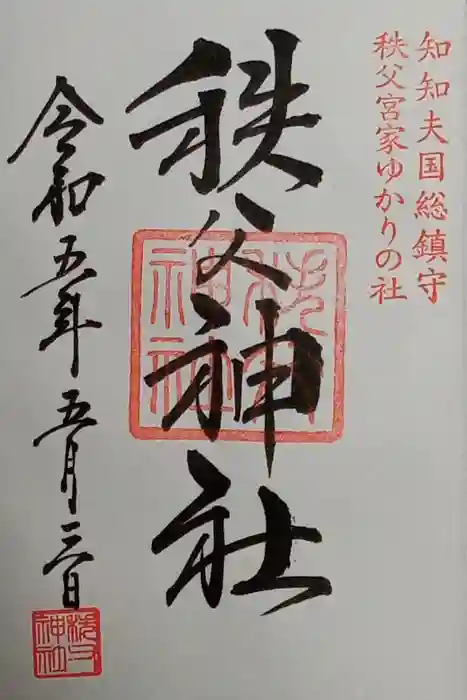 知知夫国総鎮守
秩父宮家ゆかりの社
秩父神社
令和五年五月三日
秩父神社
秩父神社